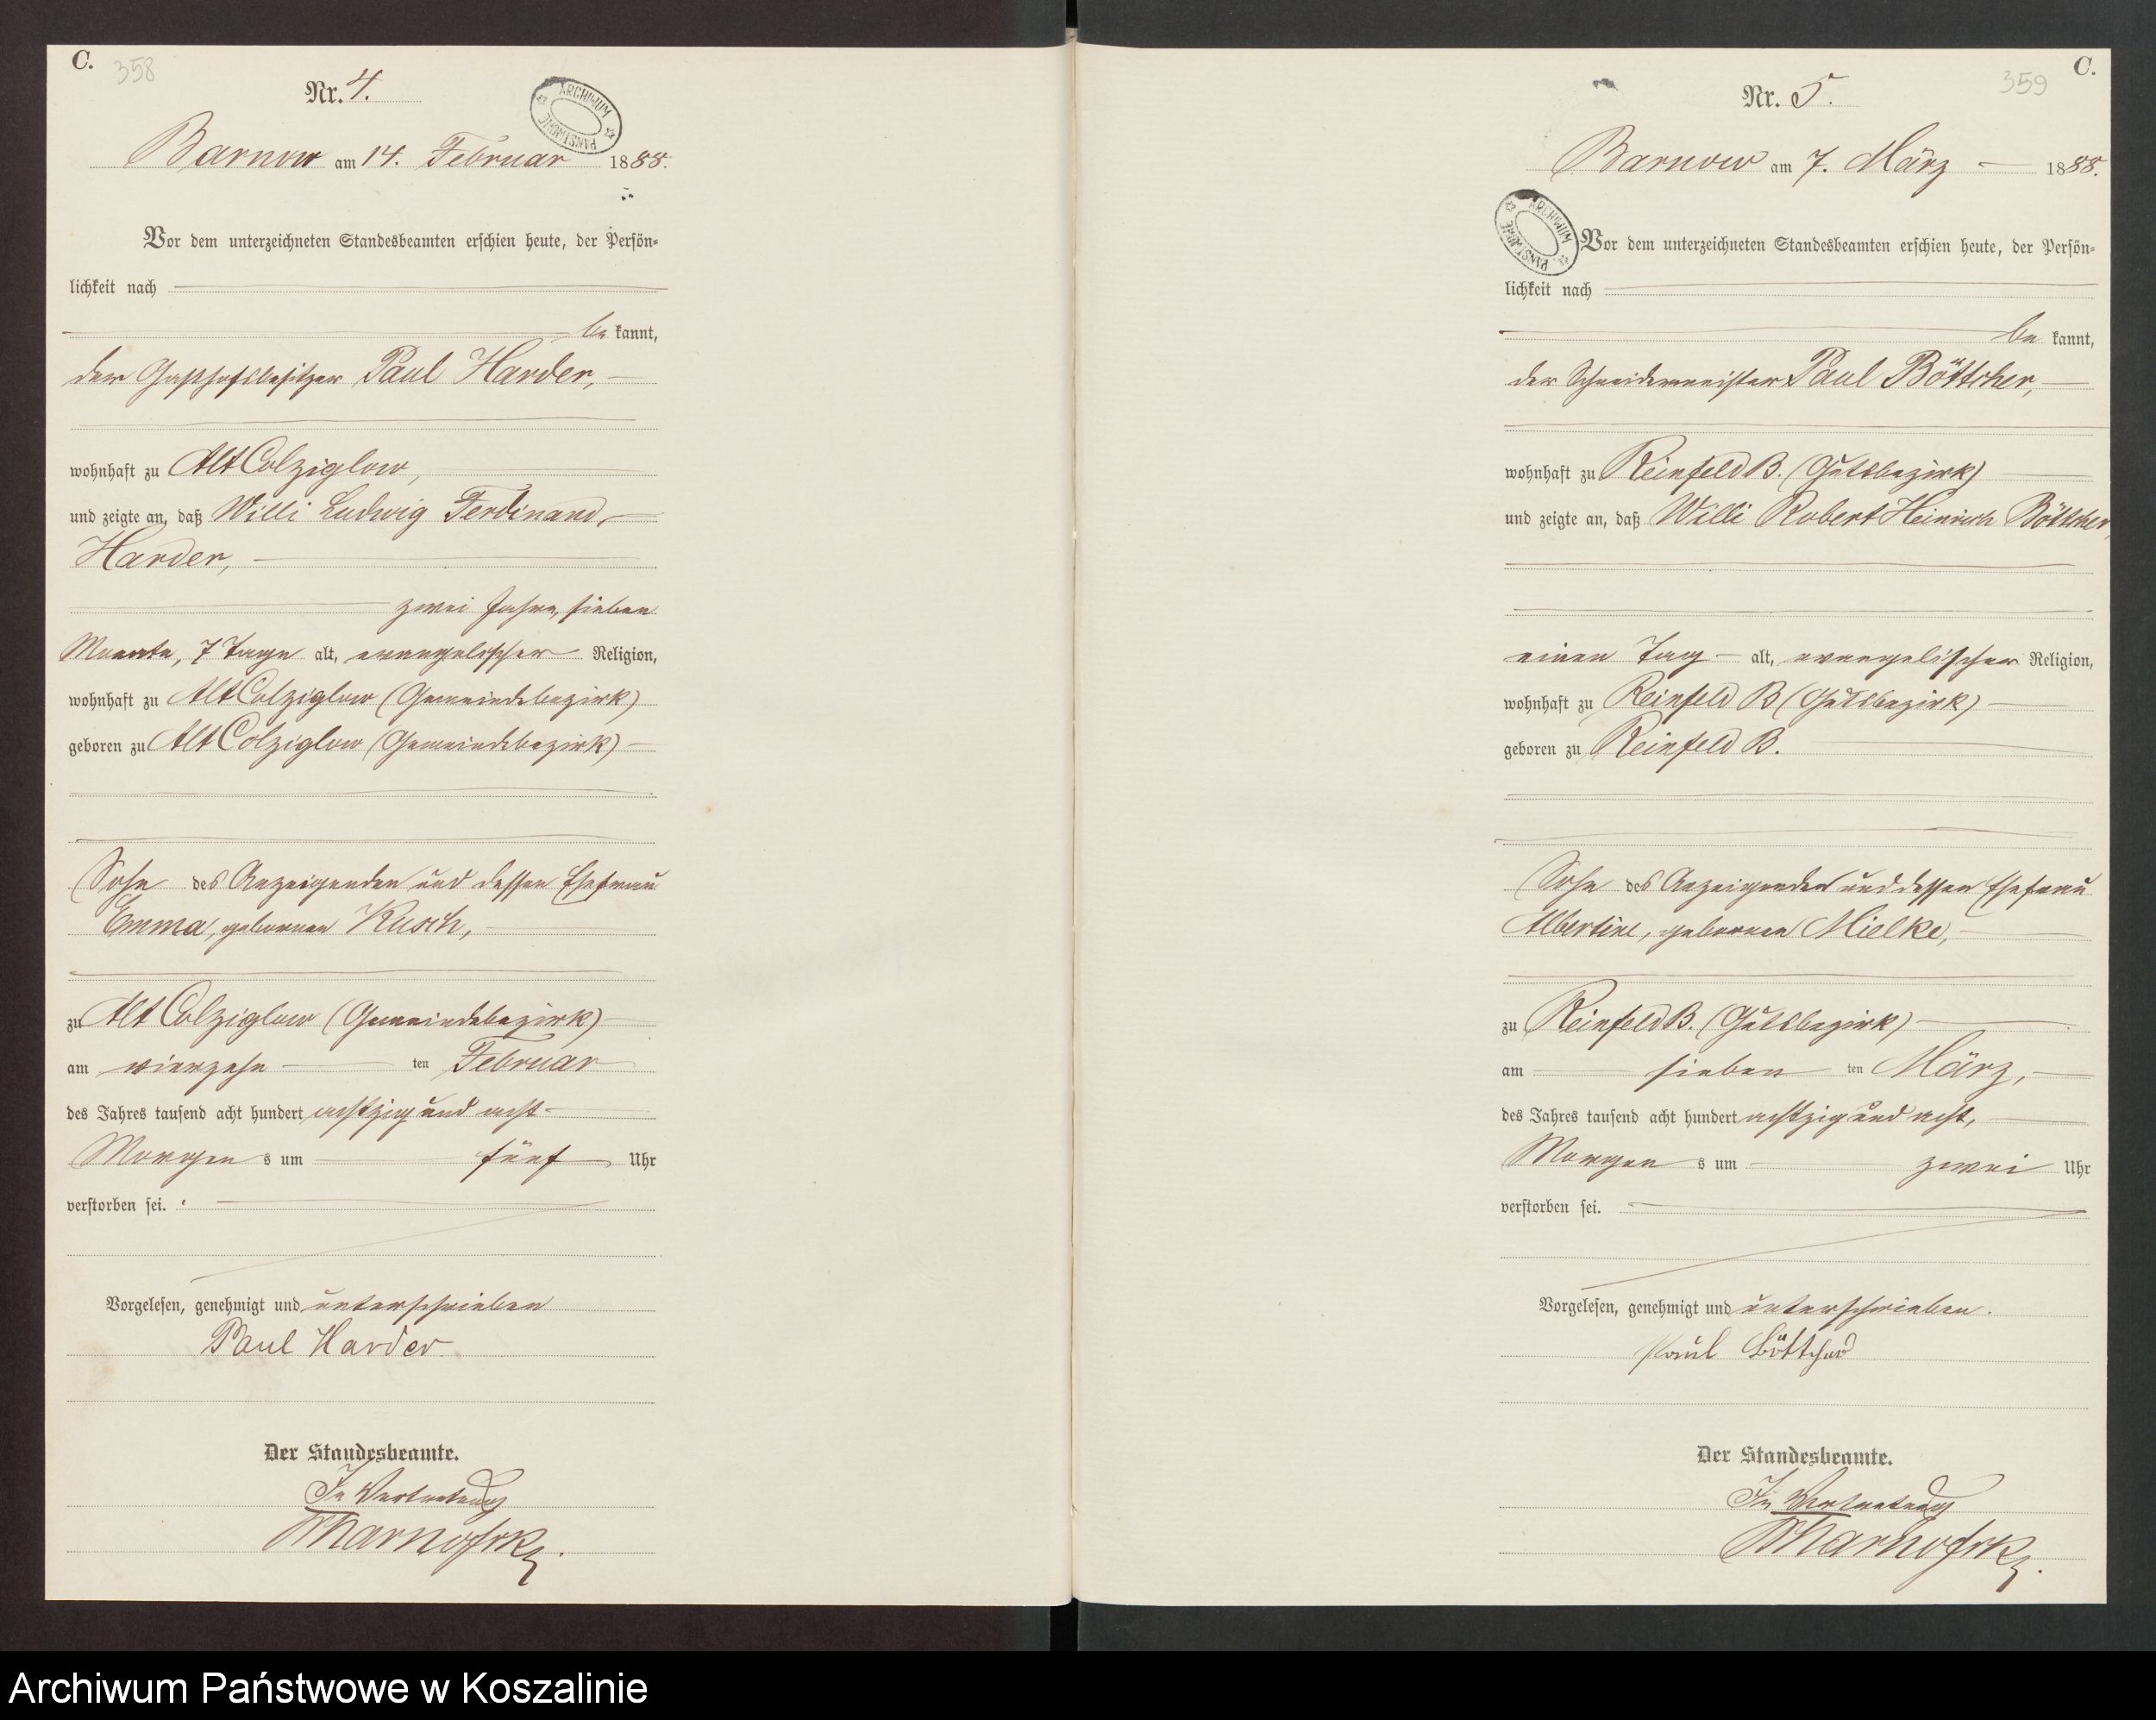 C.
358
Nr. 4.
ARCHIWUM PAŃSTWOWE
Barnow am 14. Februar 1888.
Vor dem unterzeichneten Standesbeamten erschien heute, der Persön-
lichkeit nach
be kannt,
der Gasthofsbesitzer Paul Harder,
wohnhaft zu Alt Colziglow,
und zeigte an, daß Willi Ludwig Ferdinand
Harder,
zwei Jahre, sieben
Monate, 7 Tage alt, evangelischer Religion,
wohnhaft zu Alt Colziglow (Gemeindebezirk)
geboren zu Alt Colziglow (Gemeindebezirk)
Sohn des Anzeigenden und dessen Ehefrau
Emma, geborenen Kusch,
zu Alt Colziglow (Gemeindebezirk)
am vierzehn ten Februar
des Jahres tausend acht hundert achtzig und acht
Morgen s um fünf Uhr
verstorben sei.
Vorgelesen, genehmigt und unterschrieben
Paul Harder
Der Standesbeamte.
In Vertretung
C.
359
Nr. 5.
Barnow am 7. März 1888.
ARCHIWUM PAŃSTWOWE
Vor dem unterzeichneten Standesbeamten erschien heute, der Persön-
lichkeit nach
be kannt,
der Schneidermeister Paul Böttcher,
wohnhaft zu Reinfeld B. (Gutsbezirk)
und zeigte an, daß Willi Robert Heinrich Böttcher,
einen Tag alt, evangelischer Religion,
wohnhaft zu Reinfeld B (Gutsbezirk)
geboren zu Reinfeld B.
Sohn des Anzeigenden und dessen Ehefrau
Albertine, geborenen Mielke,
zu Reinfeld B. (Gutsbezirk)
am sieben ten März,
des Jahres tausend acht hundert achtzig und acht,
Morgen s um zwei Uhr
verstorben sei.
Vorgelesen, genehmigt und unterschrieben.
Paul Böttcher
Der Standesbeamte.
In Vertretung
Archiwum Państwowe w Koszalinie